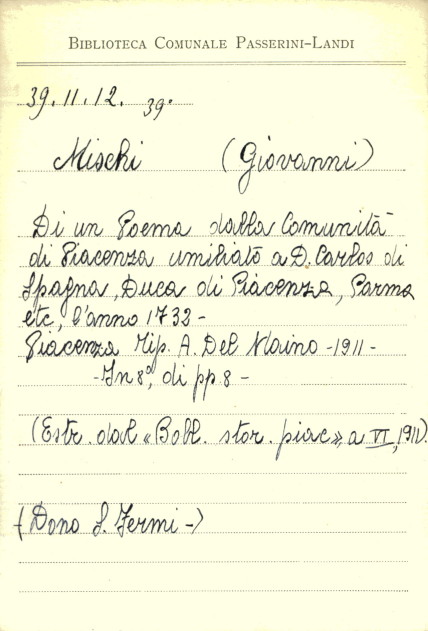 BIBLIOTECA COMUNALE PASSERINI-LANDI
39.11.12. 39°
Mischi (Giovanni)
Di un Poema dalla Comunità
di Piacenza umiliato a D. Carlos di
Spagna, Duca di Piacenza, Parma
etc, l'anno 1732-
Piacenza Tip. A. Del Maino -1911-
-In 8°, di pp 8-
(Estr. dal «Boll. stor. piac», a VI, 1911).
(Dono S. Fermi-)